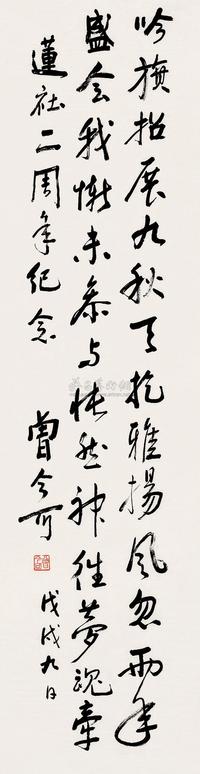 吟旗招展九秋天挖雅揚風忽兩年
盛会我慚未參与悵然神往夢魂牽
蓮社二周年纪念
曾今可
戊戌九日